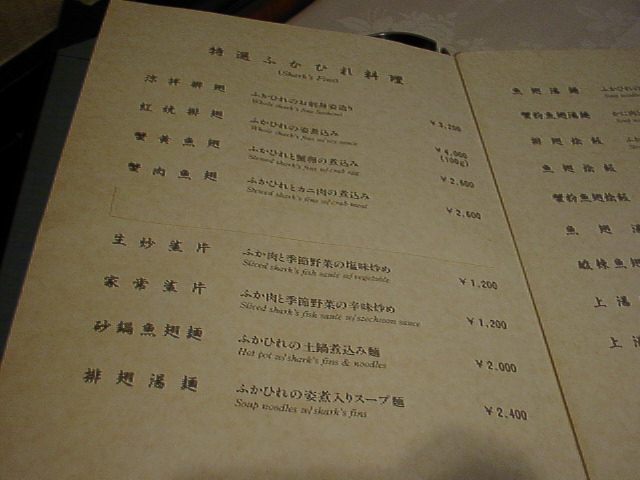 特選ふかひれ料理
(Shark's Fins)
涼拌排翅 ふかひれのお刺身姿造り ¥3,200
Whole shark's fins Sashimi
紅焼排翅 ふかひれの姿煮込み ¥4,000
Whole shark's fins w/ soy sauce (100g)
蟹黄魚翅 ふかひれと蟹卵の煮込み ¥2,600
Stewed shark's fins w/ crab egg
蟹肉魚翅 ふかひれとカニ肉の煮込み ¥2,600
Stewed shark's fins w/ crab meat
生炒鯊片 ふか肉と季節野菜の塩味炒め ¥1,200
Sliced shark's fish saute w/ vegetable
家常鯊片 ふか肉と季節野菜の辛味炒め ¥1,200
Sliced shark's fish saute w/ szechwan sauce
砂鍋魚翅麺 ふかひれの土鍋煮込み麺 ¥2,000
Hot pot w/ shark's fins & noodles
排翅湯麺 ふかひれの姿煮入りスープ麺 ¥2,400
Soup noodles w/ shark's fins
魚翅湯麺 ふかひれの
蟹粉魚翅湯麺 かに肉
排翅烩飯
魚翅烩飯
蟹粉魚翅烩飯
魚翅
魚翅
上湯
上